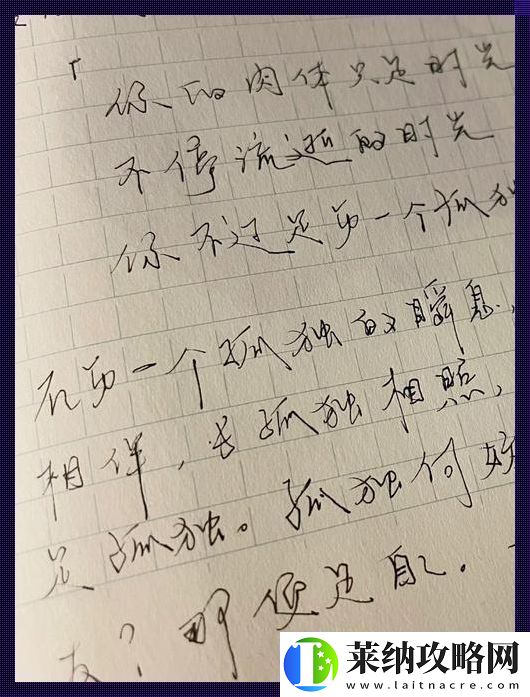 「
你的肉体只是时光
不停流逝的时光
你不过是每一个孤独
在每一个孤独的瞬息,
相伴,与孤独相照,
是孤独。孤独何好
友?那便是自己.
莱纳攻略网
www.laitnacre.com